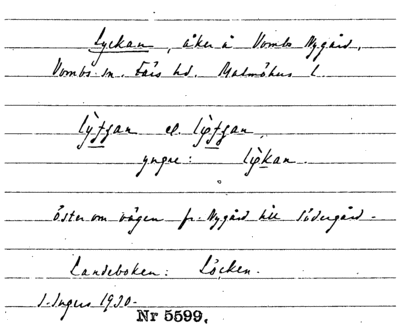 Lyckan, åker å Vombs Nygård,
Vombs sn. Färs hd. Malmöhus l.
el.
yngre:
öster om vägen fr. Nygård till Södergård.
Landeboken: Löcken.
I. Ingers 1930.
Nr 5599.